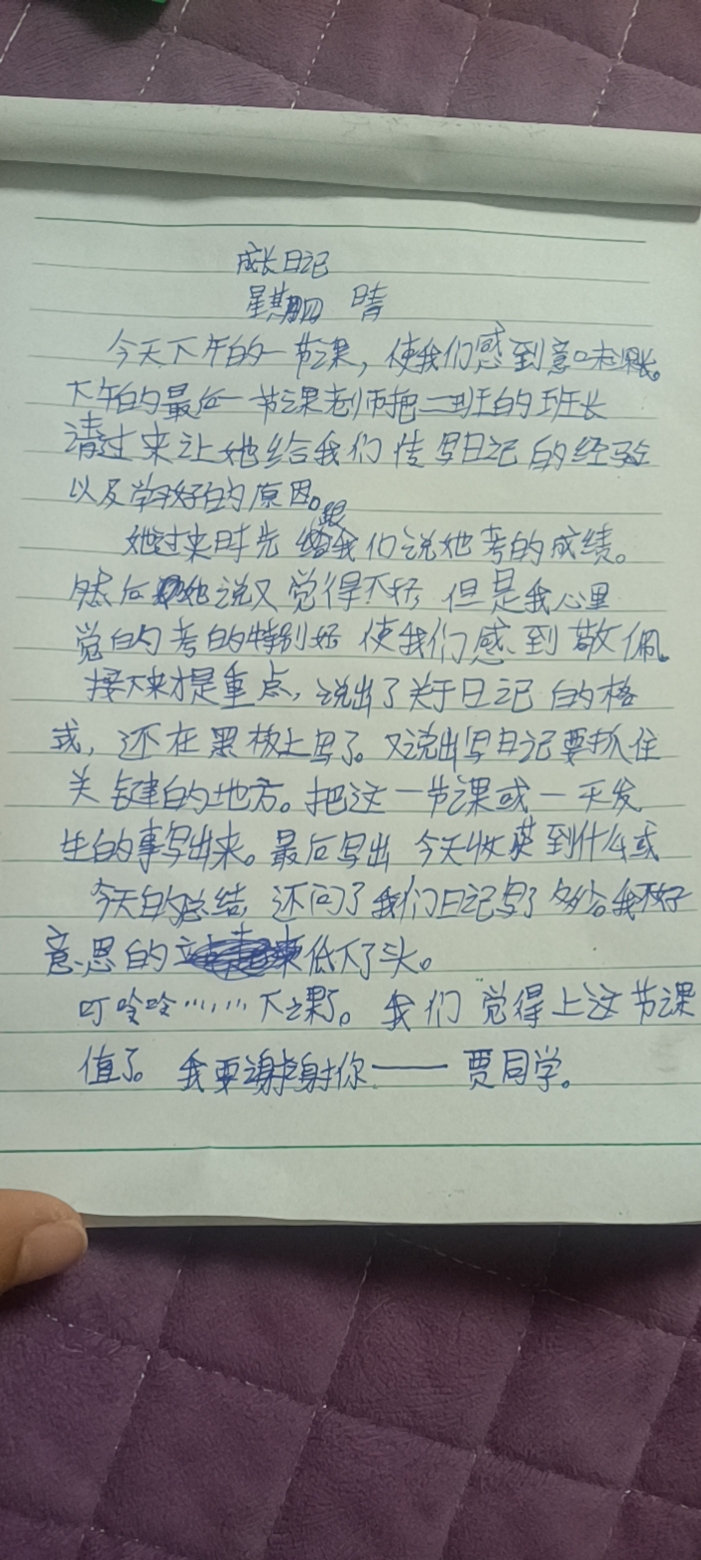 成长日记
星期四 晴
今天下午的一节课，使我们感到意味深长。
下午的最后一节课老师把二班的班长
请过来让她给我们传写日记的经验
以及学习好的原因。
她过来时先跟我们说她考的成绩。
然后她说又觉得不好，但是我心里
觉的考的特别好 使我们感到敬佩。
接下来才是重点，说出了关于日记的格
式，还在黑板上写了。又说出写日记要抓住
关键的地方。把这一节课或一天发
生的事写出来。最后写出 今天收获到什么或
今天的总结，还问了我们日记写了多少。我不好
意思的低下了头。
叮呤呤……下课了。我们觉得上这节课
值了。我要谢谢你——贾同学。